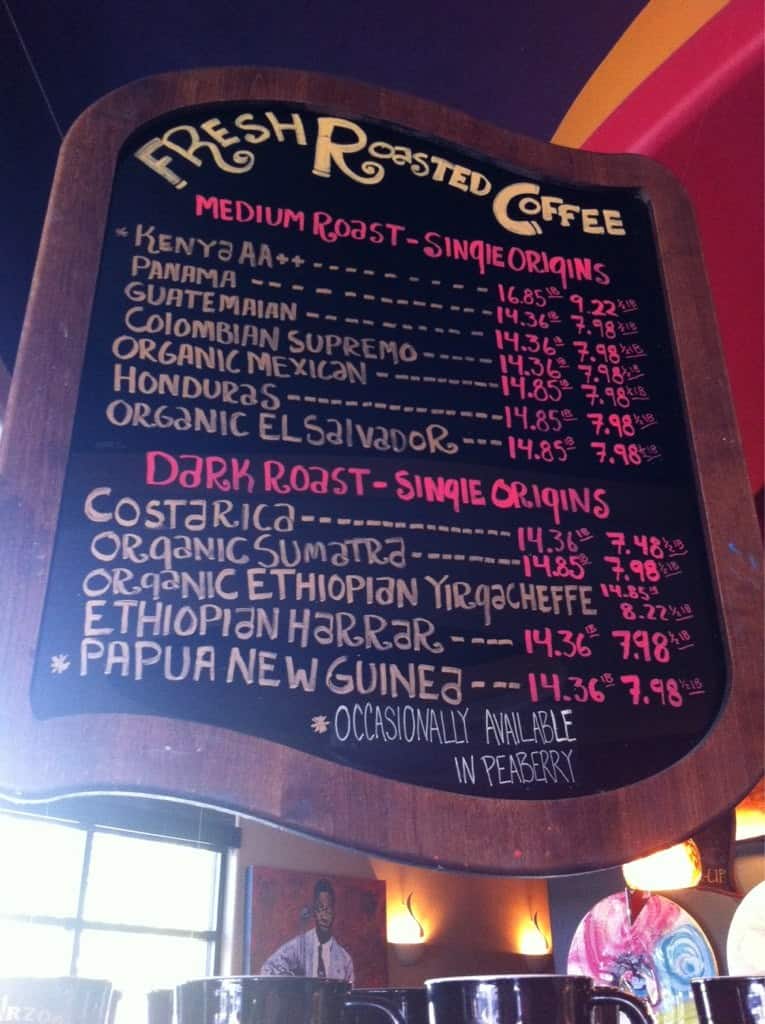 FRESH ROASTED COFFEE
MEDIUM ROAST - SINGlE ORIGINS
* KENYa AA++ - - - - - - - - 16.85 lB 9.22 ½ lB
PANAMA - - - - - - - - - 14.36 lB 7.98 ½ lB
GUATEMAlAN 14.36 lB 7.98 ½ lB
COLOMBIAN SUPREMO - - - - - 14.36 lB 7.98 ½ lB
ORGANIC MEXICaN - - - - - - - - 14.85 lB 7.98 ½ lB
HONDURaS - - - - - - - - - - - - - 14.85 lB 7.98 ½ lB
ORGANIC EL SalvaDOR - - - 14.85 lB 7.98 ½ lB
DaRK ROaST - SINGlE ORIGINS
COSTaRICa - - - - - - - - - - - - - 14.36 lB 7.48 ½ lB
ORGaNIC SUMaTRa - - - - - - - 14.85 lB 7.98 ½ lB
ORGaNIC ETHIOPIaN YIRGaCHEFFE 14.85 lB 8.22 ½ lB
ETHIOPIaN HaRRaR - - - - 14.36 lB 7.98 ½ lB
* PAPUA NEW GUINEa - - - 14.36 lB 7.98 ½ lB
* OCCASIONALLY AVAILABLE
IN PEABERRY
-UP